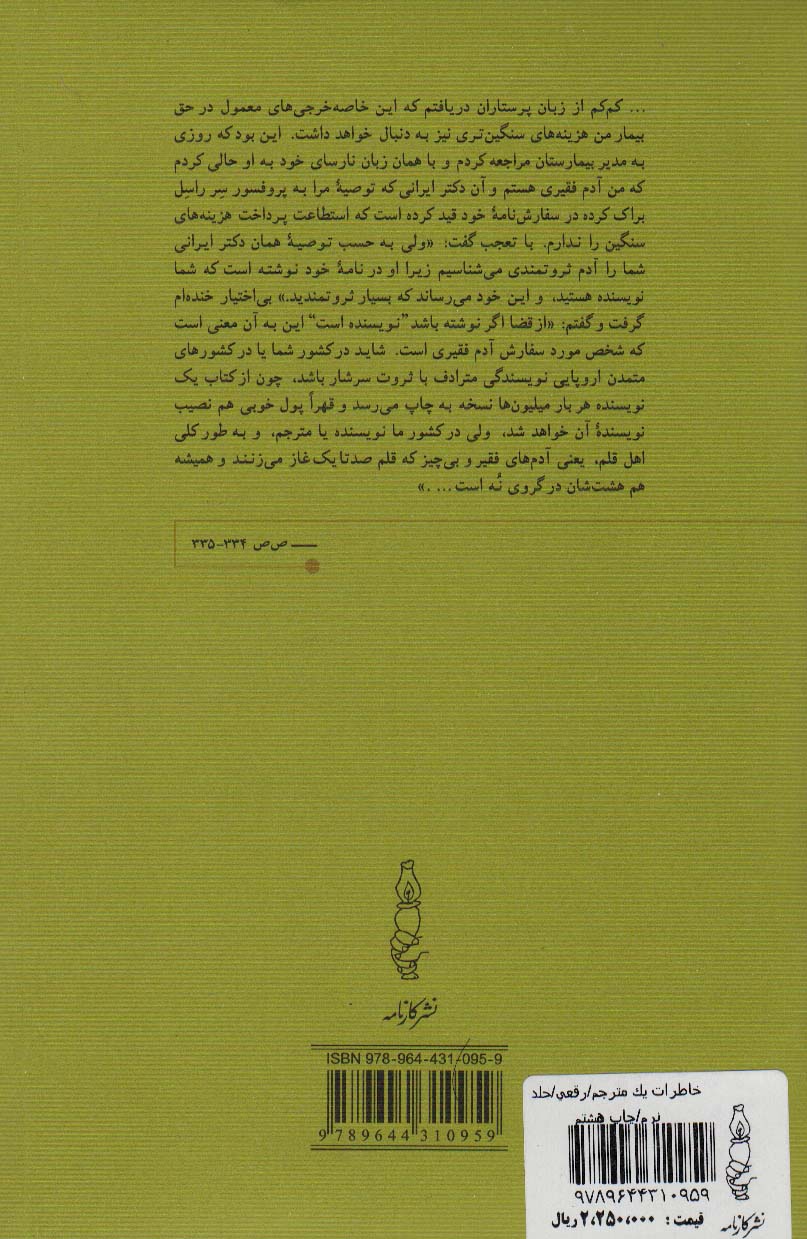 ... کم‌کم از زبان پرستاران دریافتم که این خاصه‌خرجی‌های معمول در حق
بیمار من هزینه‌های سنگین‌تری نیز به دنبال خواهد داشت. این بود که روزی
به مدیر بیمارستان مراجعه کردم و با همان زبان نارسای خود به او حالی کردم
که من آدم فقیری هستم و آن دکتر ایرانی که توصیهٔ مرا به پروفسور سِر راسِل
براک کرده در سفارش‌نامهٔ خود قید کرده است که استطاعت پرداخت هزینه‌های
سنگین را ندارم. با تعجب گفت: «ولی به حسب توصیهٔ همان دکتر ایرانی
شما را آدم ثروتمندی می‌شناسیم زیرا او در نامهٔ خود نوشته است که شما
نویسنده هستید، و این خود می‌رساند که بسیار ثروتمندید.» بی‌اختیار خنده‌ام
گرفت و گفتم: «از قضا اگر نوشته باشد "نویسنده است" این به آن معنی است
که شخص مورد سفارش آدم فقیری است. شاید در کشور شما یا در کشورهای
متمدن اروپایی نویسندگی مترادف با ثروت سرشار باشد، چون از کتاب یک
نویسنده هر بار میلیون‌ها نسخه به چاپ می‌رسد و قهراً پول خوبی هم نصیب
نویسندهٔ آن خواهد شد، ولی در کشور ما نویسنده یا مترجم، و به طور کلی
اهل قلم، یعنی آدم‌های فقیر و بی‌چیز که قلم صدتا یک غاز می‌زنند و همیشه
هم هشت‌شان در گروی نُه است... .»
— ص‌ص ۳۳۴-۳۳۵
نشر کارنامه
ISBN 978-964-431-095-9
9 789644 310959
خاطرات یك مترجم/رقعی/جلد
نرم/چاپ هشتم
۹۷۸۹۶۴۴۳۱۰۹۵۹
قیمت : ۲،۲۵۰،۰۰۰ ریال
نشر کارنامه